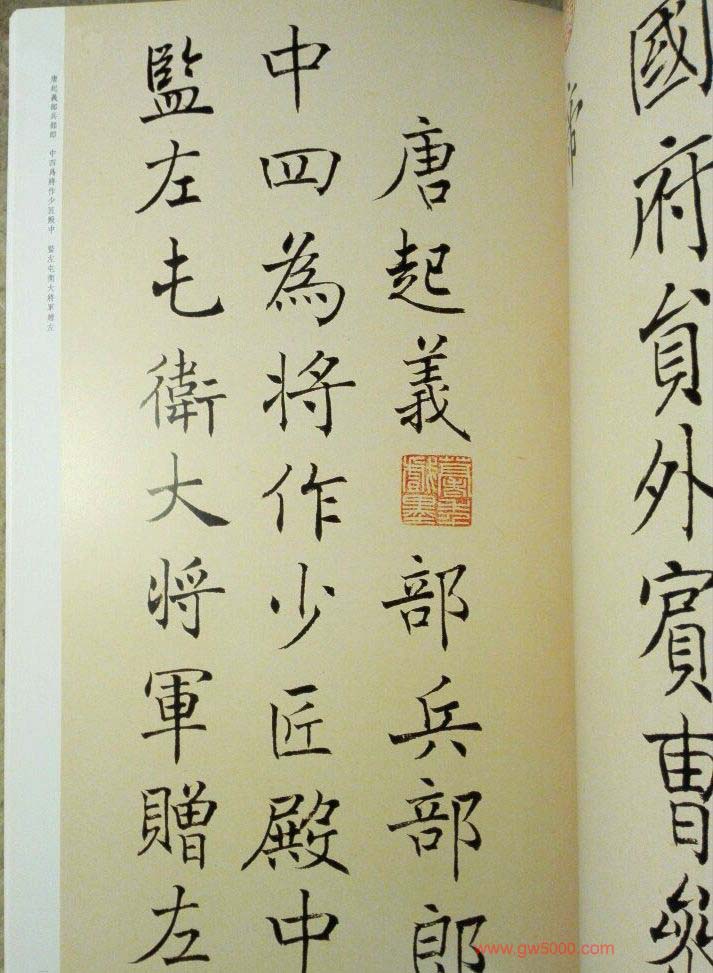 國府員外賓曹參
唐起義部兵部郎
中四為將作少匠殿中
監左屯衛大將軍贈左
唐起義部兵部郎 中四爲將作少匠殿中 監左屯衛大將軍贈左
www.gw5000.com